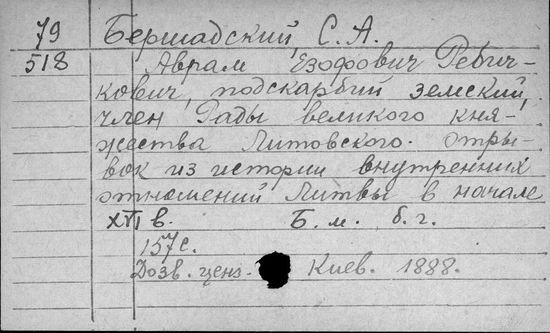 79 Бершадский, С. А.
518 Аврам Езофович Ребич-
кович, подскарбий земский,
член Рады великого кня-
жества Литовского. Отры-
вок из истории внутренних
отношений Литвы в начале
XVI в. Б. м. б. г.
157 с.
Дозв. ценз. Киев. 1888.